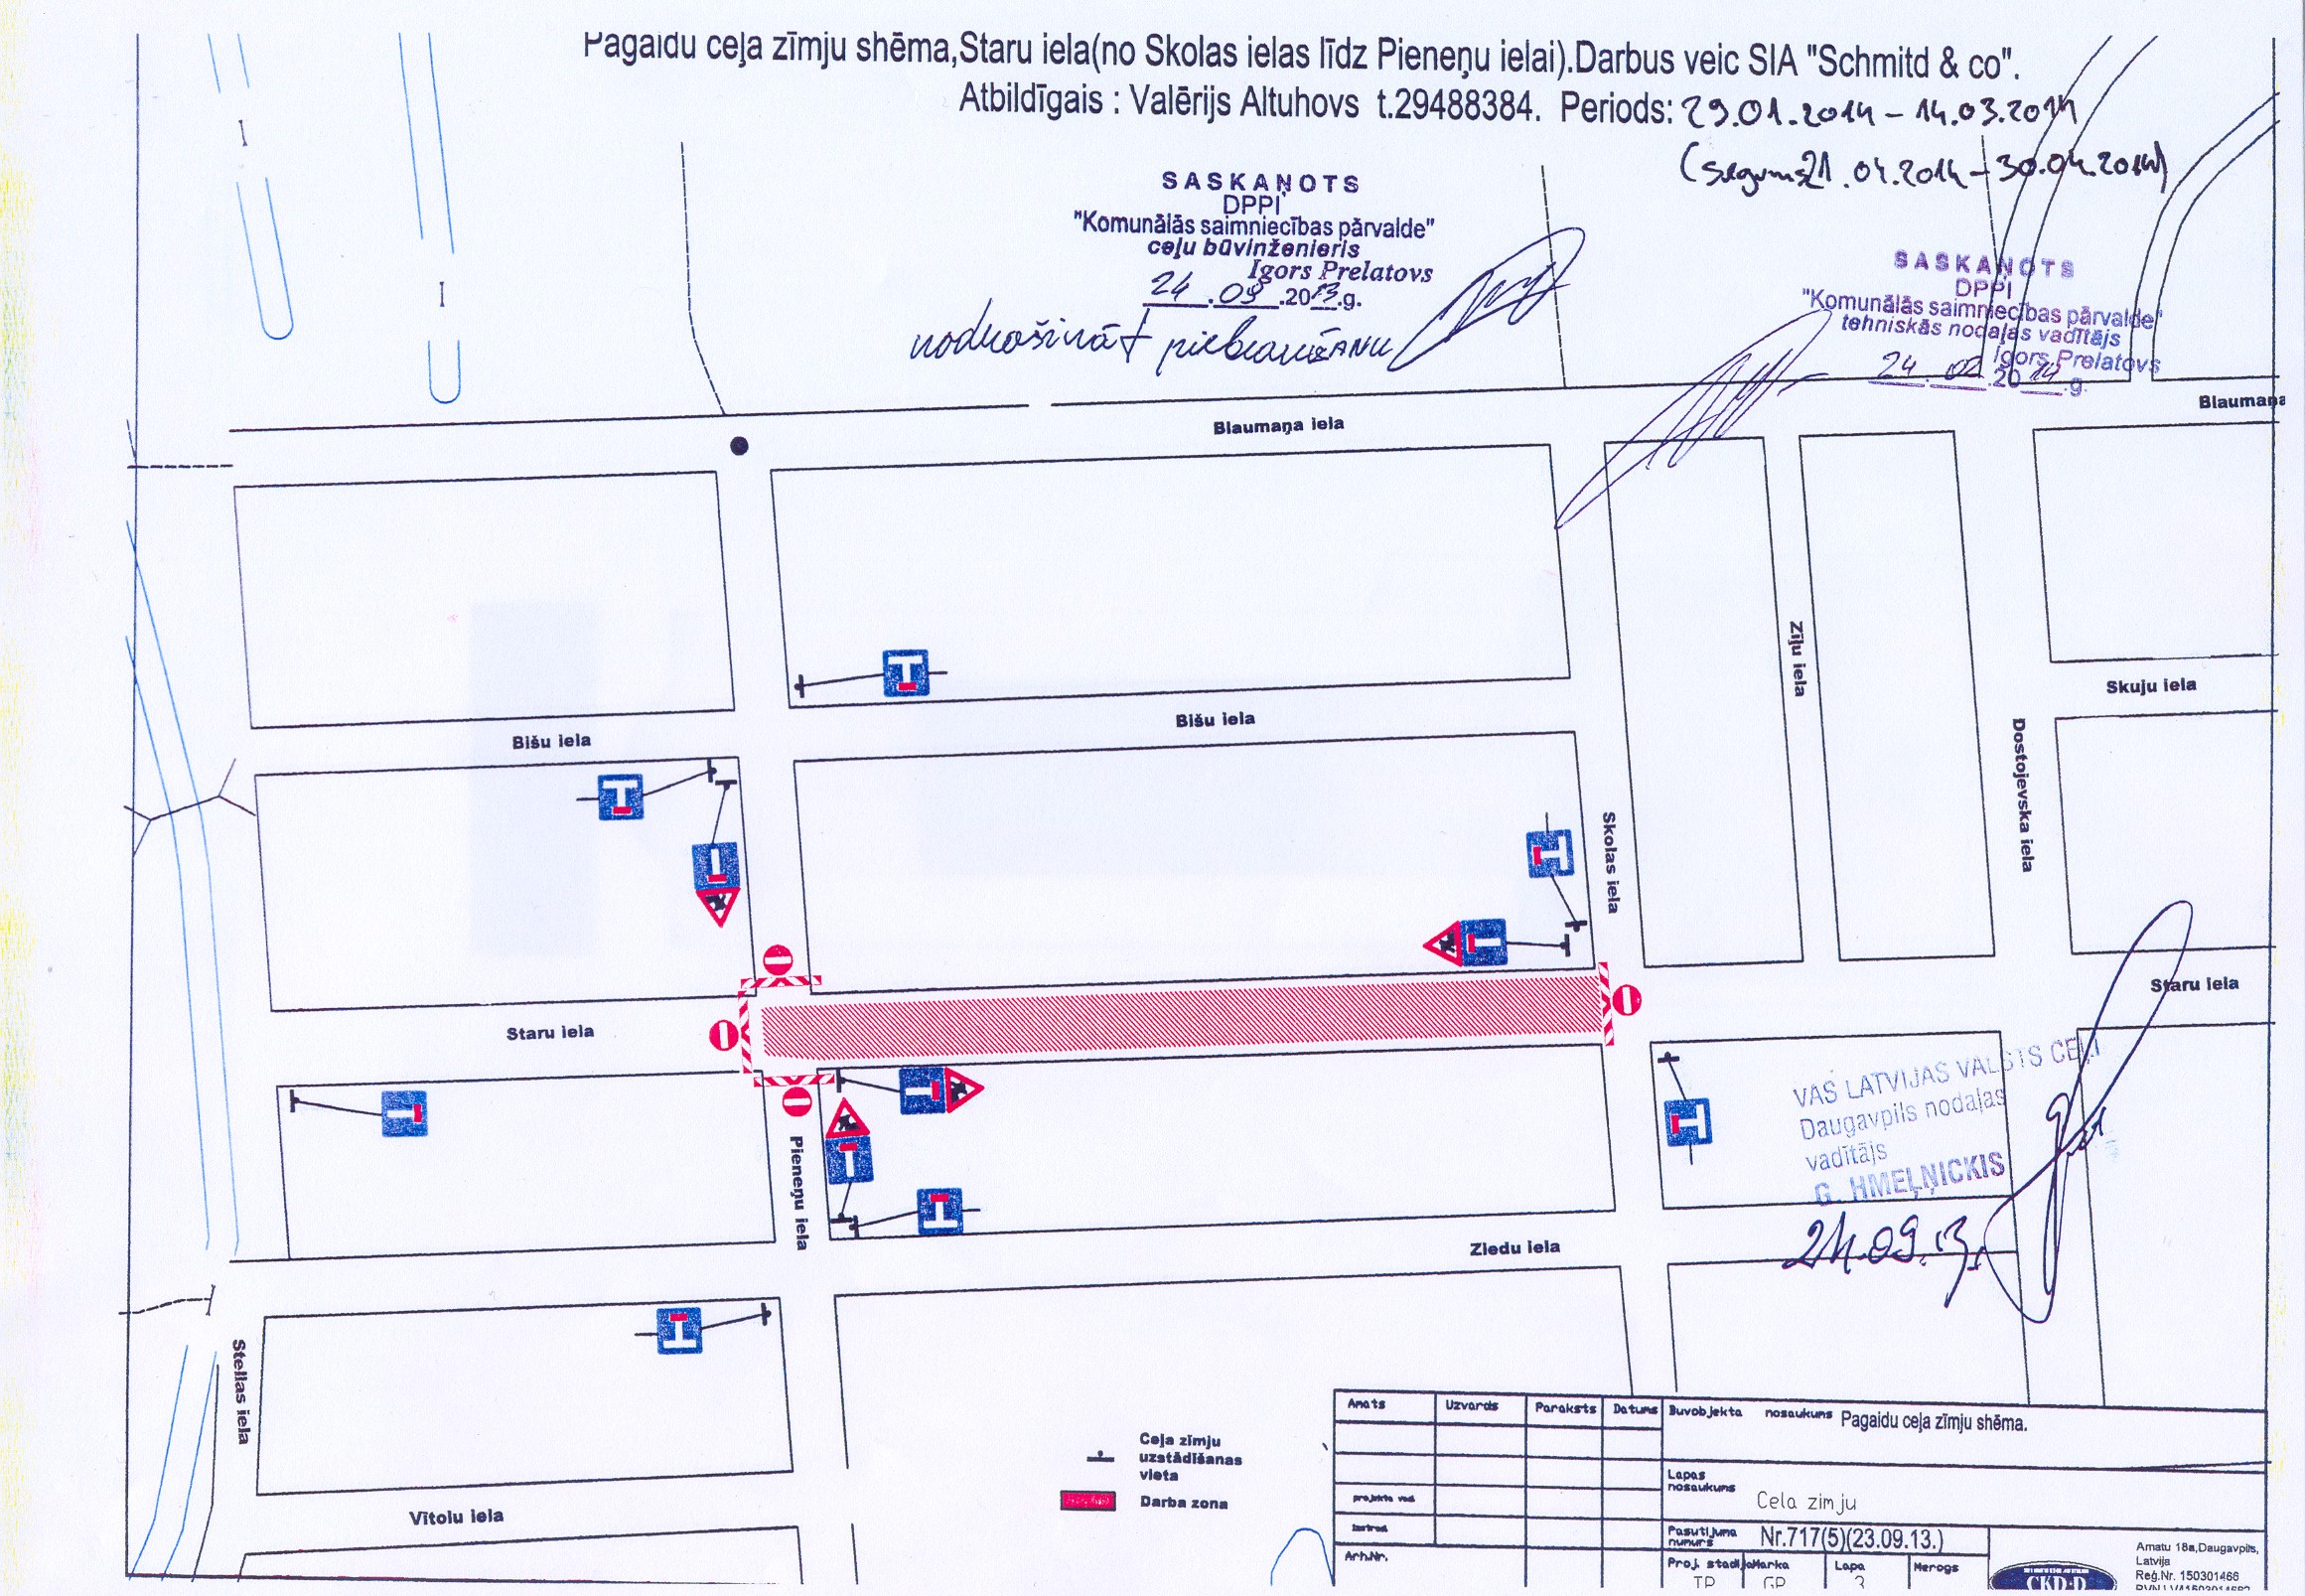 Pagaidu ceļa zīmju shēma,Staru iela(no Skolas ielas līdz Pieneņu ielai).Darbus veic SIA "Schmitd & co".
Atbildīgais : Valērijs Altuhovs t.29488384. Periods: 29.01.2014 – 14.03.2014
(segums 21.04.2014 – 30.04.2014)
SASKAŅOTS
DPPI
"Komunālās saimniecības pārvalde"
ceļu būvinženieris
Igors Prelatovs
24.09.2013.g.
nodrošināt piebraukšanu
SASKAŅOTS
DPPI
"Komunālās saimniecības pārvalde"
tehniskās nodaļas vadītājs
Igors Prelatovs
24.02.2014.g.
Blaumaņa iela
Blaumaņa
Zīļu iela
Skuju iela
Bišu iela
Bišu iela
Dostojevska iela
Skolas iela
Staru iela
Staru iela
VAS LATVIJAS VALSTS CEĻI
Daugavpils nodaļas
vadītājs
G. HMEĻŅICKIS
24.09.13.
Pieneņu iela
Ziedu iela
Stellas iela
Vītolu iela
Ceļa zīmju
uzstādīšanas
vieta
Darba zona
Amats Uzvards Paraksts Datums Buvobjekta nosaukums Pagaidu ceļa zīmju shēma.
Lapas
nosaukums
Cela zimju
projekta vad.
Pasutijuma
numurs
Nr.717(5)(23.09.13.)
Arh.Nr.
Proj. stadija Marka Lapa Merogs
TP GP 3
CKD-D
Amatu 18a,Daugavpils,
Latvija
Reģ.Nr. 150301466